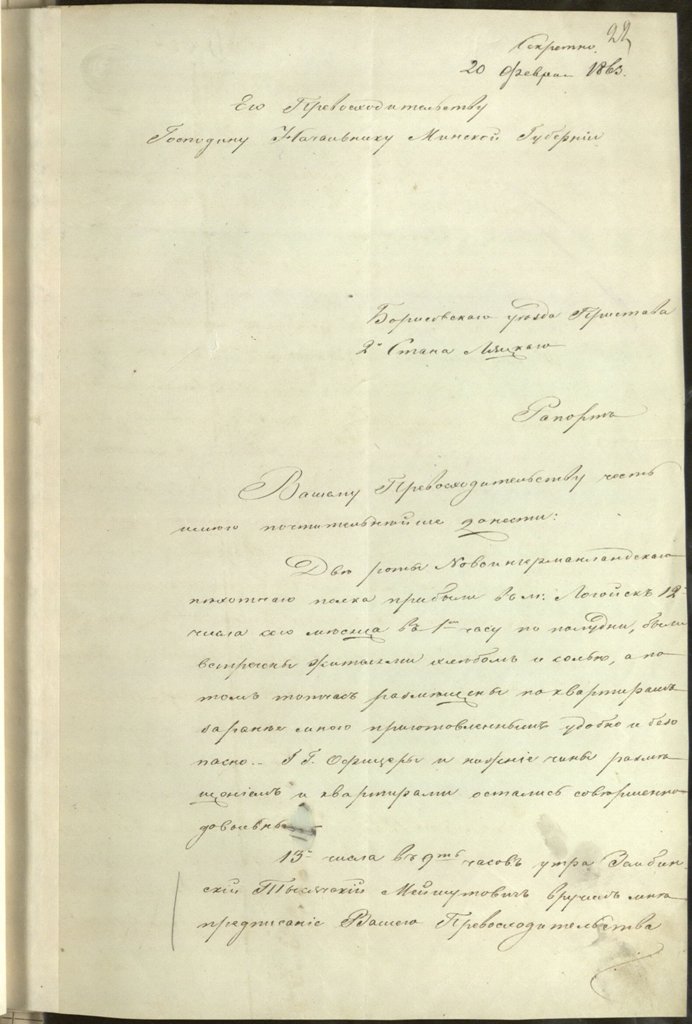 22
Секретно.
20 Февраля 1863.
Его Превосходительству
Господину Начальнику Минской Губерніи
Борисовскаго уѣзда Пристава
2го Стана
Рапортъ
Вашему Превосходительству честь
имѣю почтительнѣйше донести:
Двѣ роты Новоингерманландскаго
пѣхотнаго полка прибыли въ м: Логойскъ 12
числа сего мѣсяца въ 1мъ часу по полудни, были
встрѣчены жителями хлѣбомъ и солью, а по
томъ тотчасъ размѣщены по квартирамъ
заранѣе мною приготовленнымъ удобно и безо
пасно. Г. Г. Офицеры и нижніе чины размѣ
щеніемъ и квартирами остались совершенно
довольны
13го числа въ 9ть часовъ утра
скій вручилъ мнѣ
предписаніе Вашего Превосходительства